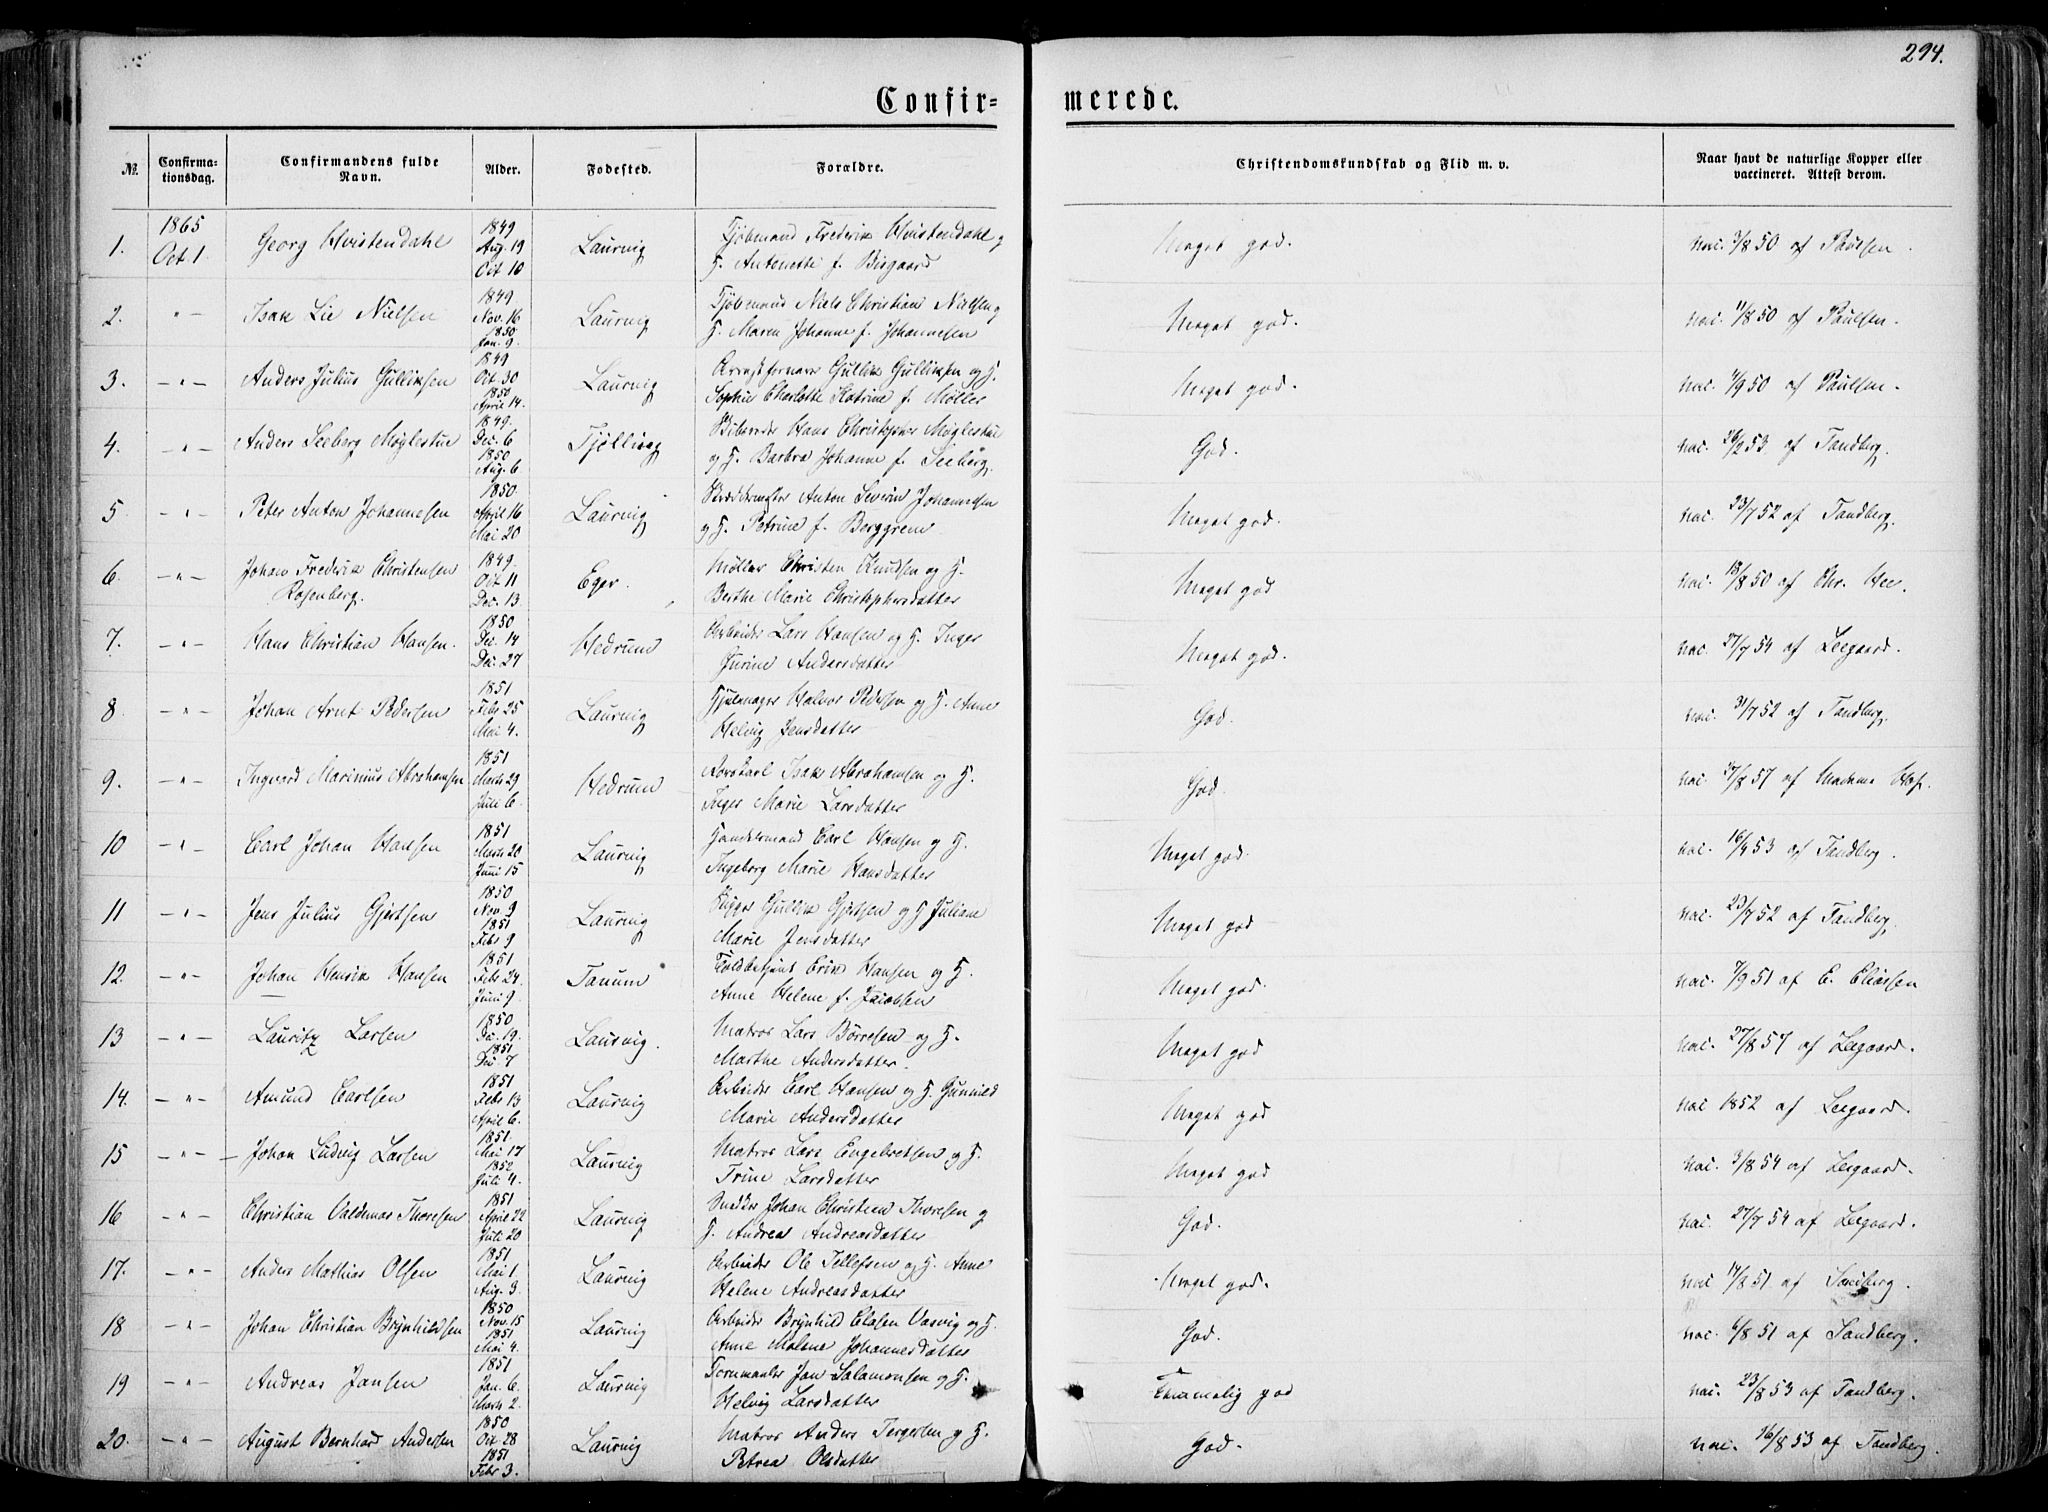 294.
Confir= merede.
№. Confirma-tionsdag. Confirmandens fulde Navn. Alder. Fødested. Forældre. Christendomskundskab og Flid m. v. Naar havt de naturlige Kopper eller vaccineret. Attest derom.
1. 1865 Oct 1. Georg Hvistendahl 1849 Aug. 19 Oct 10 Laurvig Kjøbmand Frederik Hvistendahl og H. Antonette f. Bisgaard Meget god. vac. 3/8 50 af Paulsen.
2. -"- Isak Lie Nielsen 1849 Nov. 16 1850 Jan. 9. Laurvig Kjøbmand Niels Christian Nielsen og H. Maren Johanne f. Johannesen Meget god. vac. 11/8 50 af Paulsen.
3. -"- Anders Julius Gulliksen 1849 Oct. 30 1850 April 14. Laurvig Gullik Gulliksen og H. Sophie Charlotte Katrine f. Møller Meget god. vac. 4/9 50 af Paulsen.
4. -"- Anders Seeberg Møglestue 1849. Dec. 6 1850 Aug. 6. Tjølling Hans Christopher Møglestue og H. Barbra Johanne f. Seeberg. God. vac. 26/2 53 af Tandberg.
5 -"- Peter Anton Johannesen 1850. April 16 Mai 20 Laurvig Anton Severin Johannesen og H. Petrine f. Berggreen Meget god. vac. 23/7 52 af Tandberg.
6. -"- Johan Frederik Christensen Rosenberg. 1849. Oct 11 Dec. 13. Eger. Møller Christen Knudsen og H. Berthe Marie Christophersdatter Meget god vac. 18/8 50 af Chr. Hee.
7. -"- Hans Christian Hansen. 1850 Dec. 14 Dec. 27 Hedrum Arbeider Lars Hansen og H. Inger Andersdatter Meget god. vac. 27/7 54 af Leegaard.
8 -"- Johan Arnt Pedersen 1851 Febr 25 Mai 4. Laurvig Hjulmager Halvor Pedersen og H. Anne Helvig Jensdatter God. vac. 31/7 52 af Tandberg.
9. -"- Ingvard Marinius Abrahamsen 1851 Marts 29 Juli 6. Hedrum Isak Abrahamsen og H. Inger Marie Larsdatter God. vac. 27/8 57 af Madame
10 -"- Carl Johan Hansen 1851 Marts 20 Juni 15 Laurvig Handelsmand Carl Hansen og H. Ingeborg Marie Hansdatter Meget god. vac. 16/9 53 af Tandberg.
11 -"- Jens Julius Gjertsen 1850 Nov. 9 1851 Febr 9 Laurvig Gullik Gjertsen og H Juliane Marie Jensdatter Meget god vac. 23/7 52 af Tandberg.
12. -"- Johan Henrik Hansen 1851 Febr 24. Juni 9. Tanum Toldbetjent Erik Hansen og H. Anne Helene f. Jacobsen Meget god. vac. 7/9 51 af E. Eliassen
13 -"- Lauritz Larsen 1850 Dec. 19. 1851 Dec. 7 Laurvig. Matros Lars Børresen og H. Marthe Andersdatter. Meget god vac. 27/8 57 af Leegaard.
14. -"- Amund Carlsen 1851 Febr 13 April 6. Laurvig Arbeider Carl Hansen og H. Gunnild Marie Andersdatter Meget god vac 1852 af Leegaard.
15 -"- Johan Ludvig Larsen 1851. Mai 17 1852 Juli 4. Laurvig Matros Lars Engebretsen og H. Trine Larsdatter Meget god vac. 3/8 54 af Leegaard.
16 -"- Christian Valdemar Thoresen 1851 April 22 Juli 20 Laurvig Snedker Johan Christian Thoresen og H. Andrea Andreasdatter God. vac. 27/7 54 af Leegaard.
17. -"- Anders Mathias Olsen 1851 Mai 1. Aug. 3. Laurvig Arbeider Ole Tellefsen og H. Anne Helene Andreasdatter Meget god. vac 14/8 51 af Sandberg.
18 -"- Johan Christian Brynhildsen 1850 Nov. 15 1851 Mai 4. Laurvig Arbeider Brynhild Clasen Vasvig og H. Anne Malene Johannesdatter God. vac. 6/8 51 af Sandberg.
19 -"- Andreas Jansen 1851 Jan. 6. Marts 2. Laurvig Jan Salamonsen og H. Helvig Larsdatter Temmelig god vac. 23/8 53 af Tandberg.
20. -"- August Bernhard Andersen 1850 Oct. 28 1851 Febr 3. Laurvig Matros Anders Tergersen og H. Petrea Olsdatter God. vac. 16/8 53 af Tandberg.